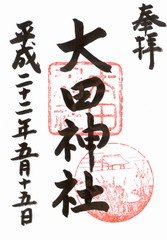 奉拝
大田神社
平成二十二年五月十五日